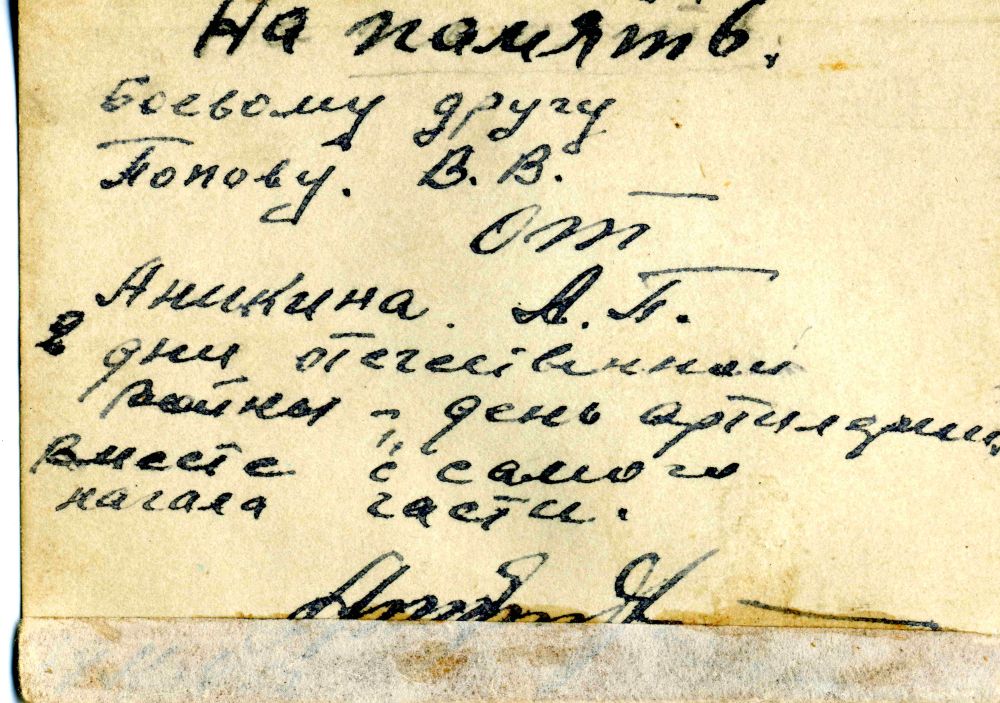 На память.
боевому другу
Попову. В. В.
от
Аникина. А. П.
в дни отечественной
войны - день артилерии,
вместе с самого
начала части.